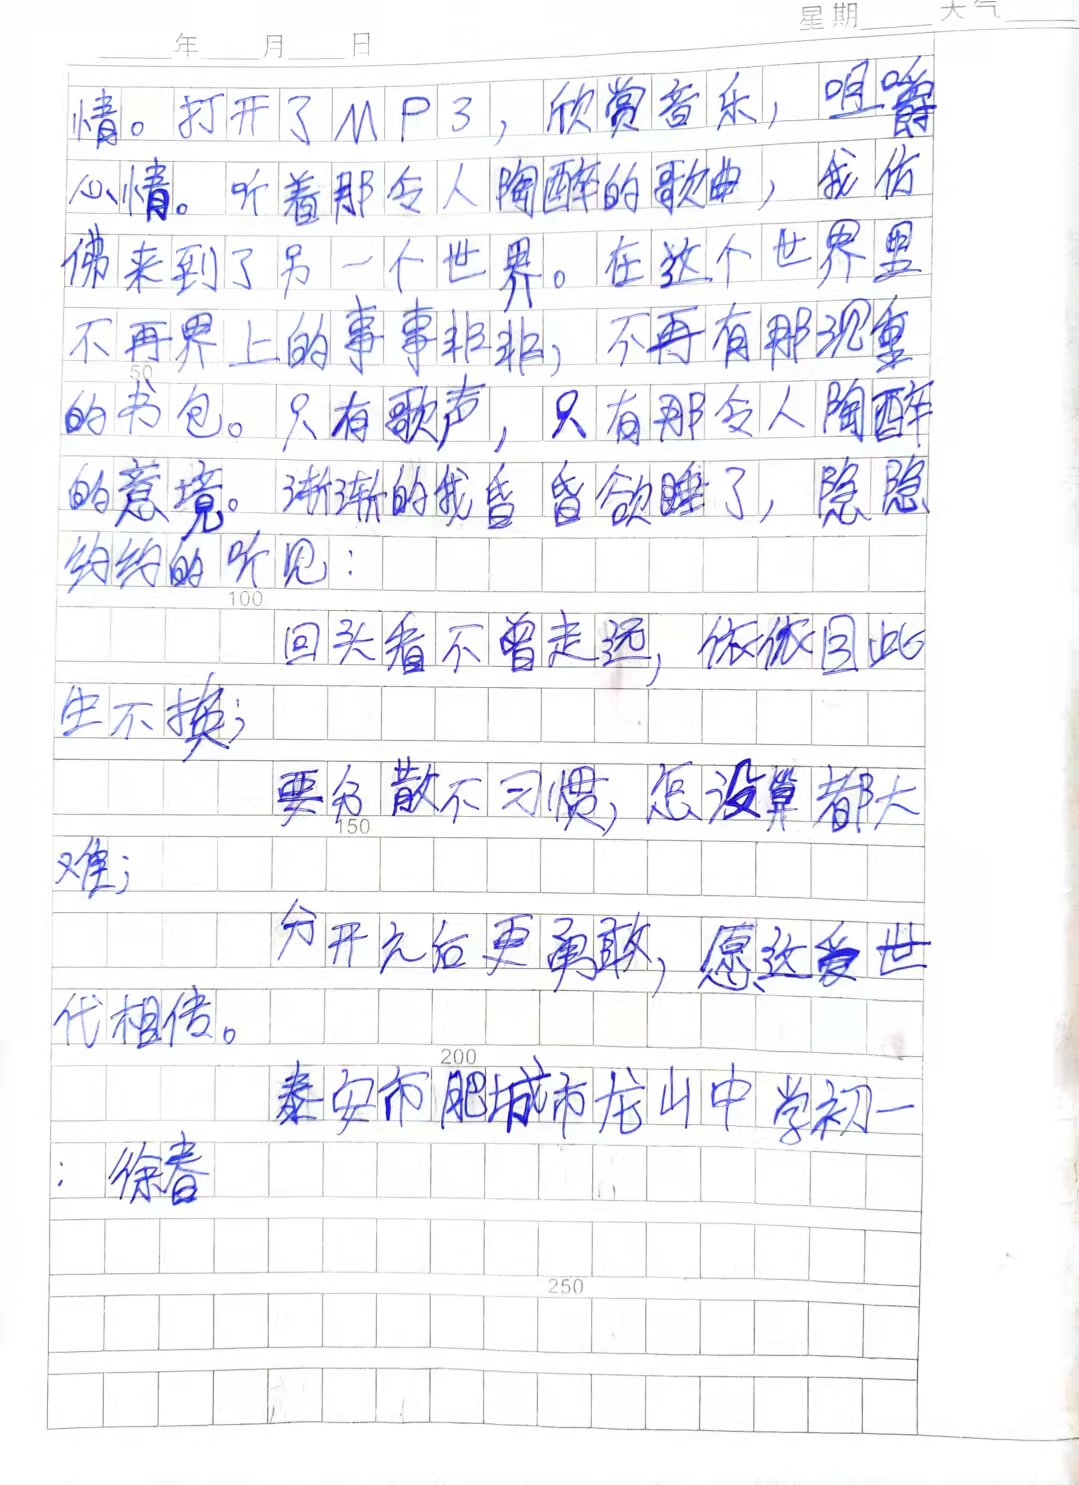 星期 天气
年 月 日
情。打开了MP3,欣赏音乐,咀嚼
心情。听着那令人陶醉的歌曲,我仿
佛来到了另一个世界。在这个世界里
不再界上的事事非非,不再有那沉重
50
的书包。只有歌声,只有那令人陶醉
的意境。渐渐的我昏昏欲睡了,隐隐
约约的听见:
100
回头看不曾走远,依依目此
生不换;
要分散不习惯,怎没算都大
150
难;
分开之后更勇敢,愿这爱世
代相传。
200
泰安市肥城市龙山中学初一
:徐春
250